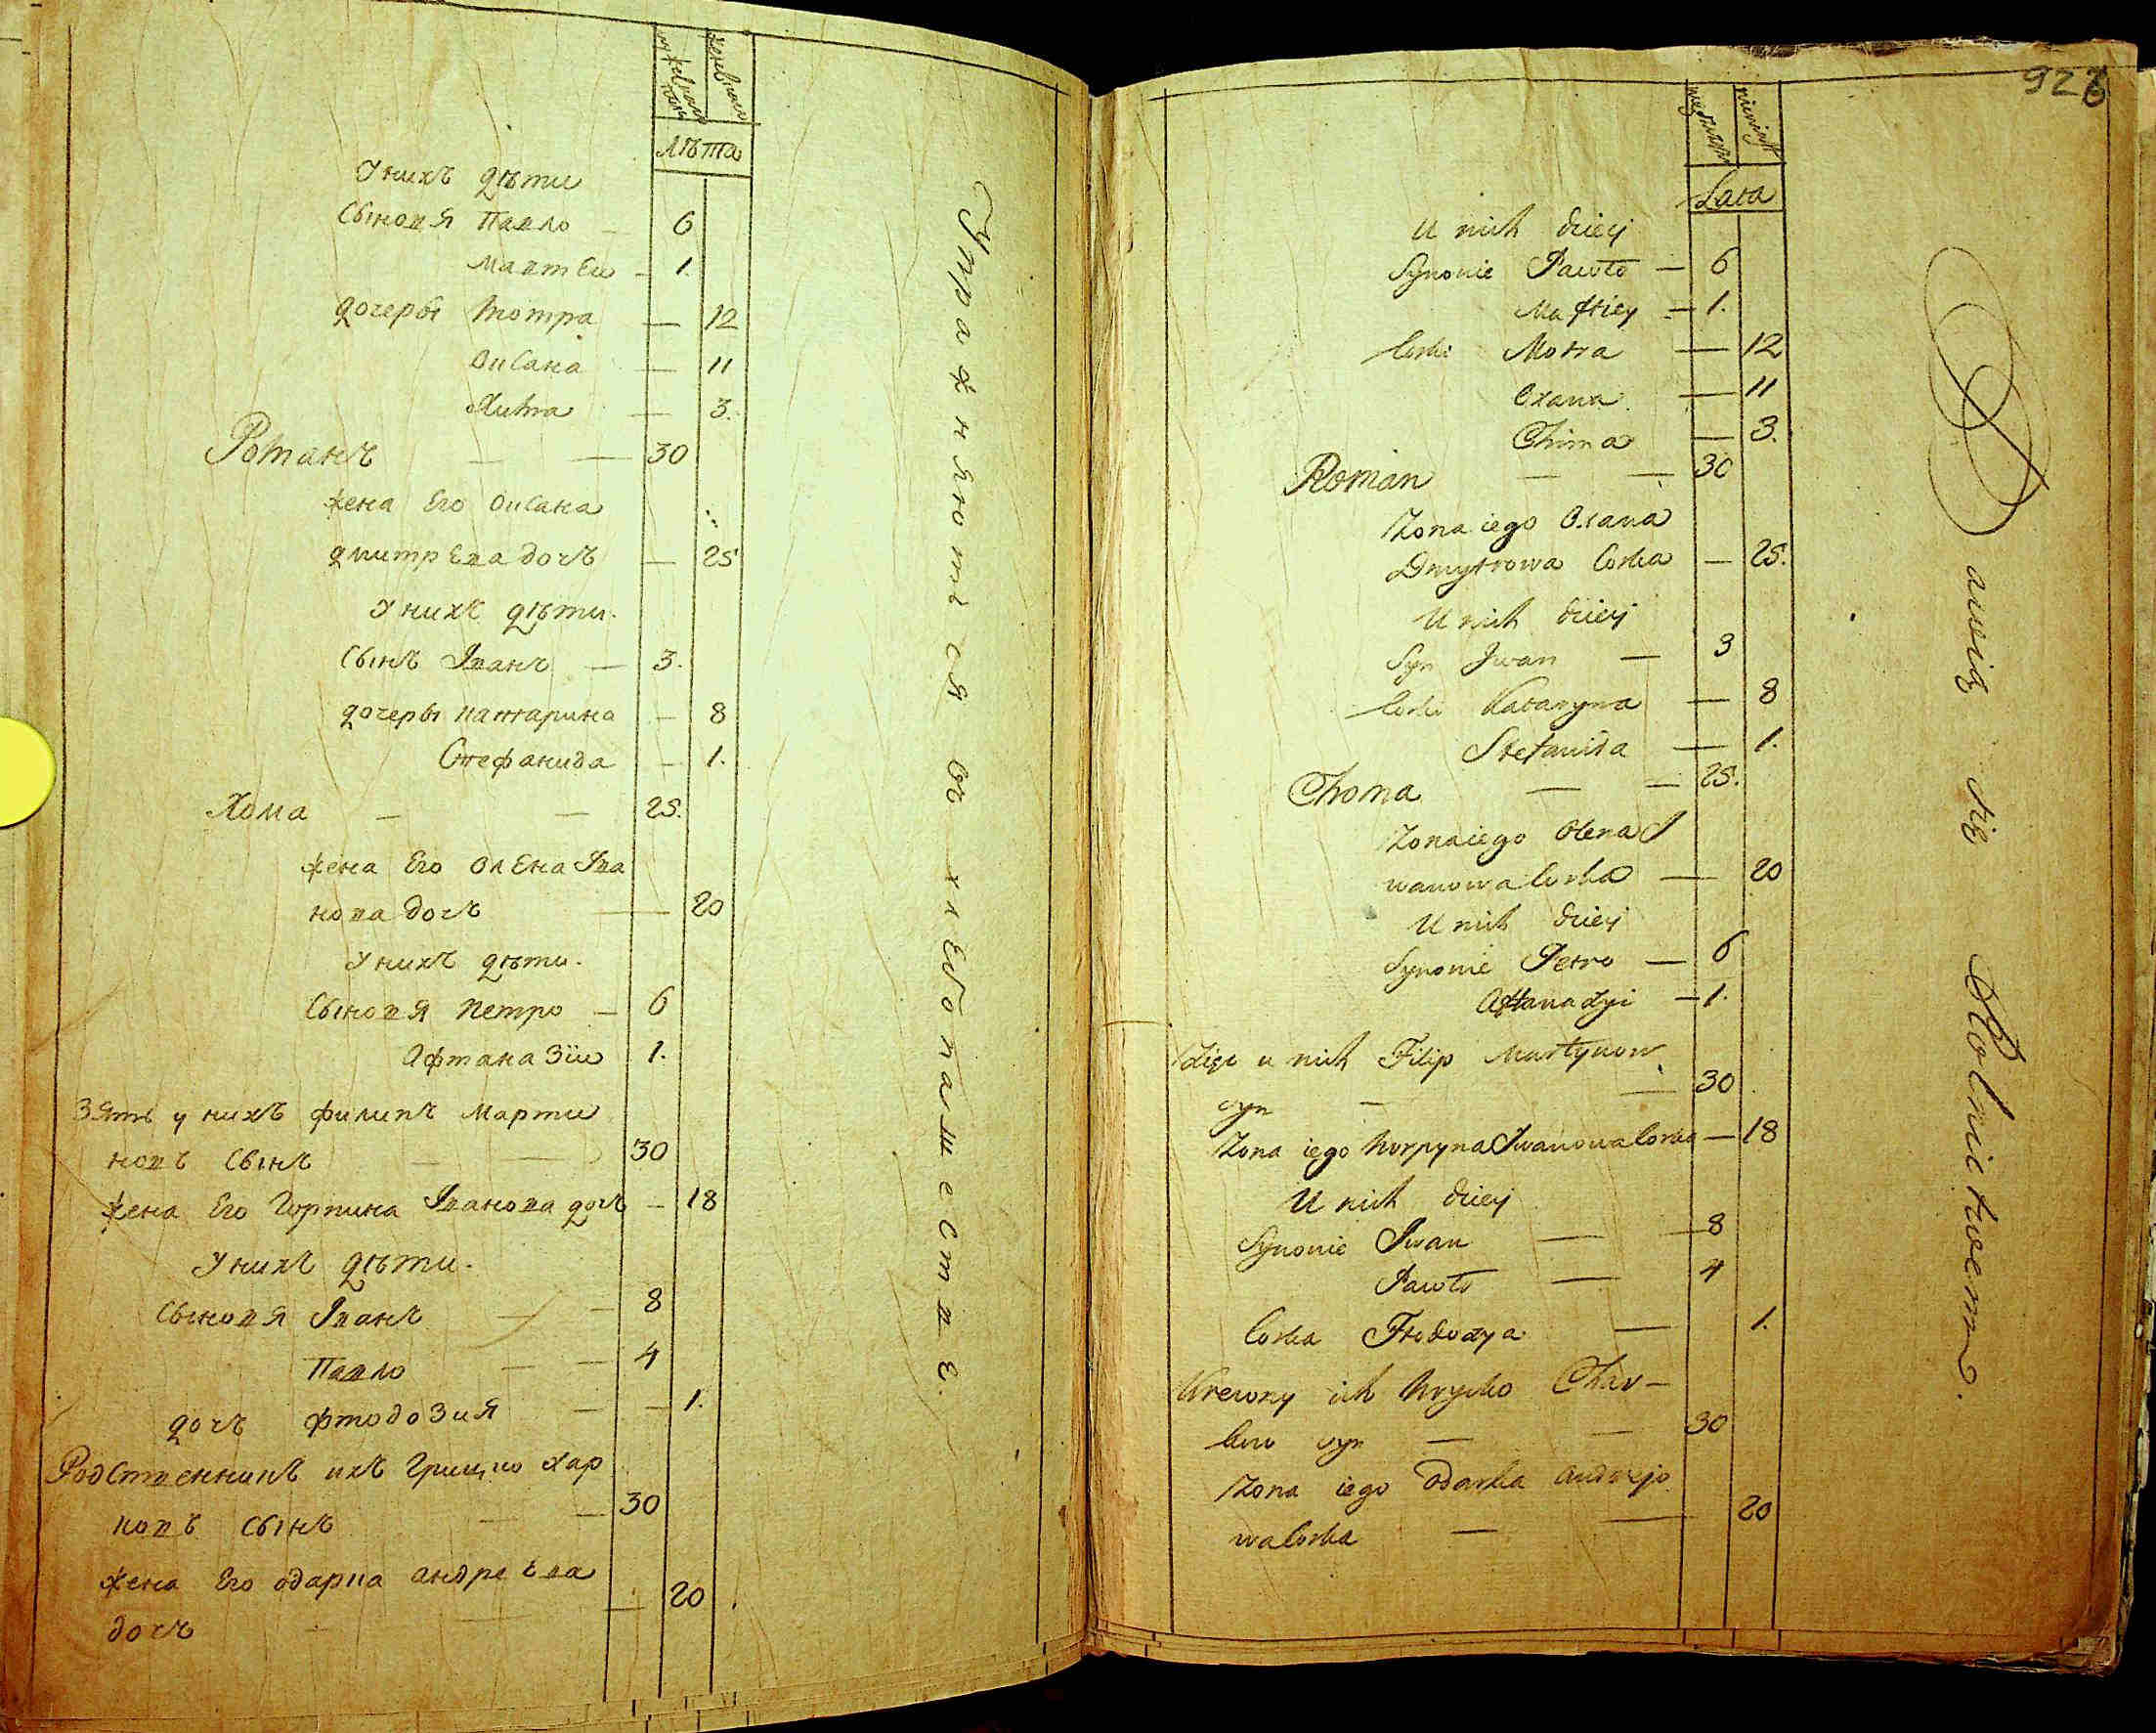 лѣта
У нихъ дѣти
Сыновя Павло — 6
Мавтеи — 1.
дочеры Мотра — 12
Оксана — 11
Химa — 3.
Романъ — — 30
жена Его Оксана
дмитрева дочъ — 25
У нихъ дѣти.
Сынъ Иванъ — 3.
дочеры катарина — 8
Стефанида — 1.
Хома — — 25.
жена Его Олена Ива
нова дочъ — 20
У нихъ дѣти.
Сыновя Петро — 6
Афтаназiи 1.
Зять у нихъ филипъ Марти
новъ Сынъ — — 30
жена Его Горпина Иванова дочъ — 18
У нихъ дѣти.
Сыновя Иванъ — — 8
Павло — — 4
дочъ фтодозия — — 1.
Родственникъ ихъ Грицко Хар
ковъ Сынъ — — 30
жена Его одарка андрева
дочъ — — 20
Упражняютъся въ хлебопашестве.
926
Lata
U nich dzieci
Synowie Pawło — 6
Maftiey — 1.
Corki Motra — 12
Oxana — 11
Chima — 3.
Roman — — 30
Zona iego Oxana
Dmytrowa Corka — 25.
U nich dzieci
Syn Iwan — 3
Corki Kataryna — 8
Stefanida — 1.
Choma — — 25.
Zona iego Olena I
wanowa Corka — 20
U nich dzieci
Synowie Petro — 6
Aftanazyi — 1.
Zięć u nich Filip Martynow
syn — — 30
Zona iego Horpyna Iwanowa Corka — 18
U nich dzieci
Synowie Iwan — 8
Pawło — 4
Corka Ftodozya — 1.
Krewny ich Hryćko Char-
kow syn — — 30
Zona iego Odarka Andrejo
wa Corka — — 20
Bawią się Rolnictwem.